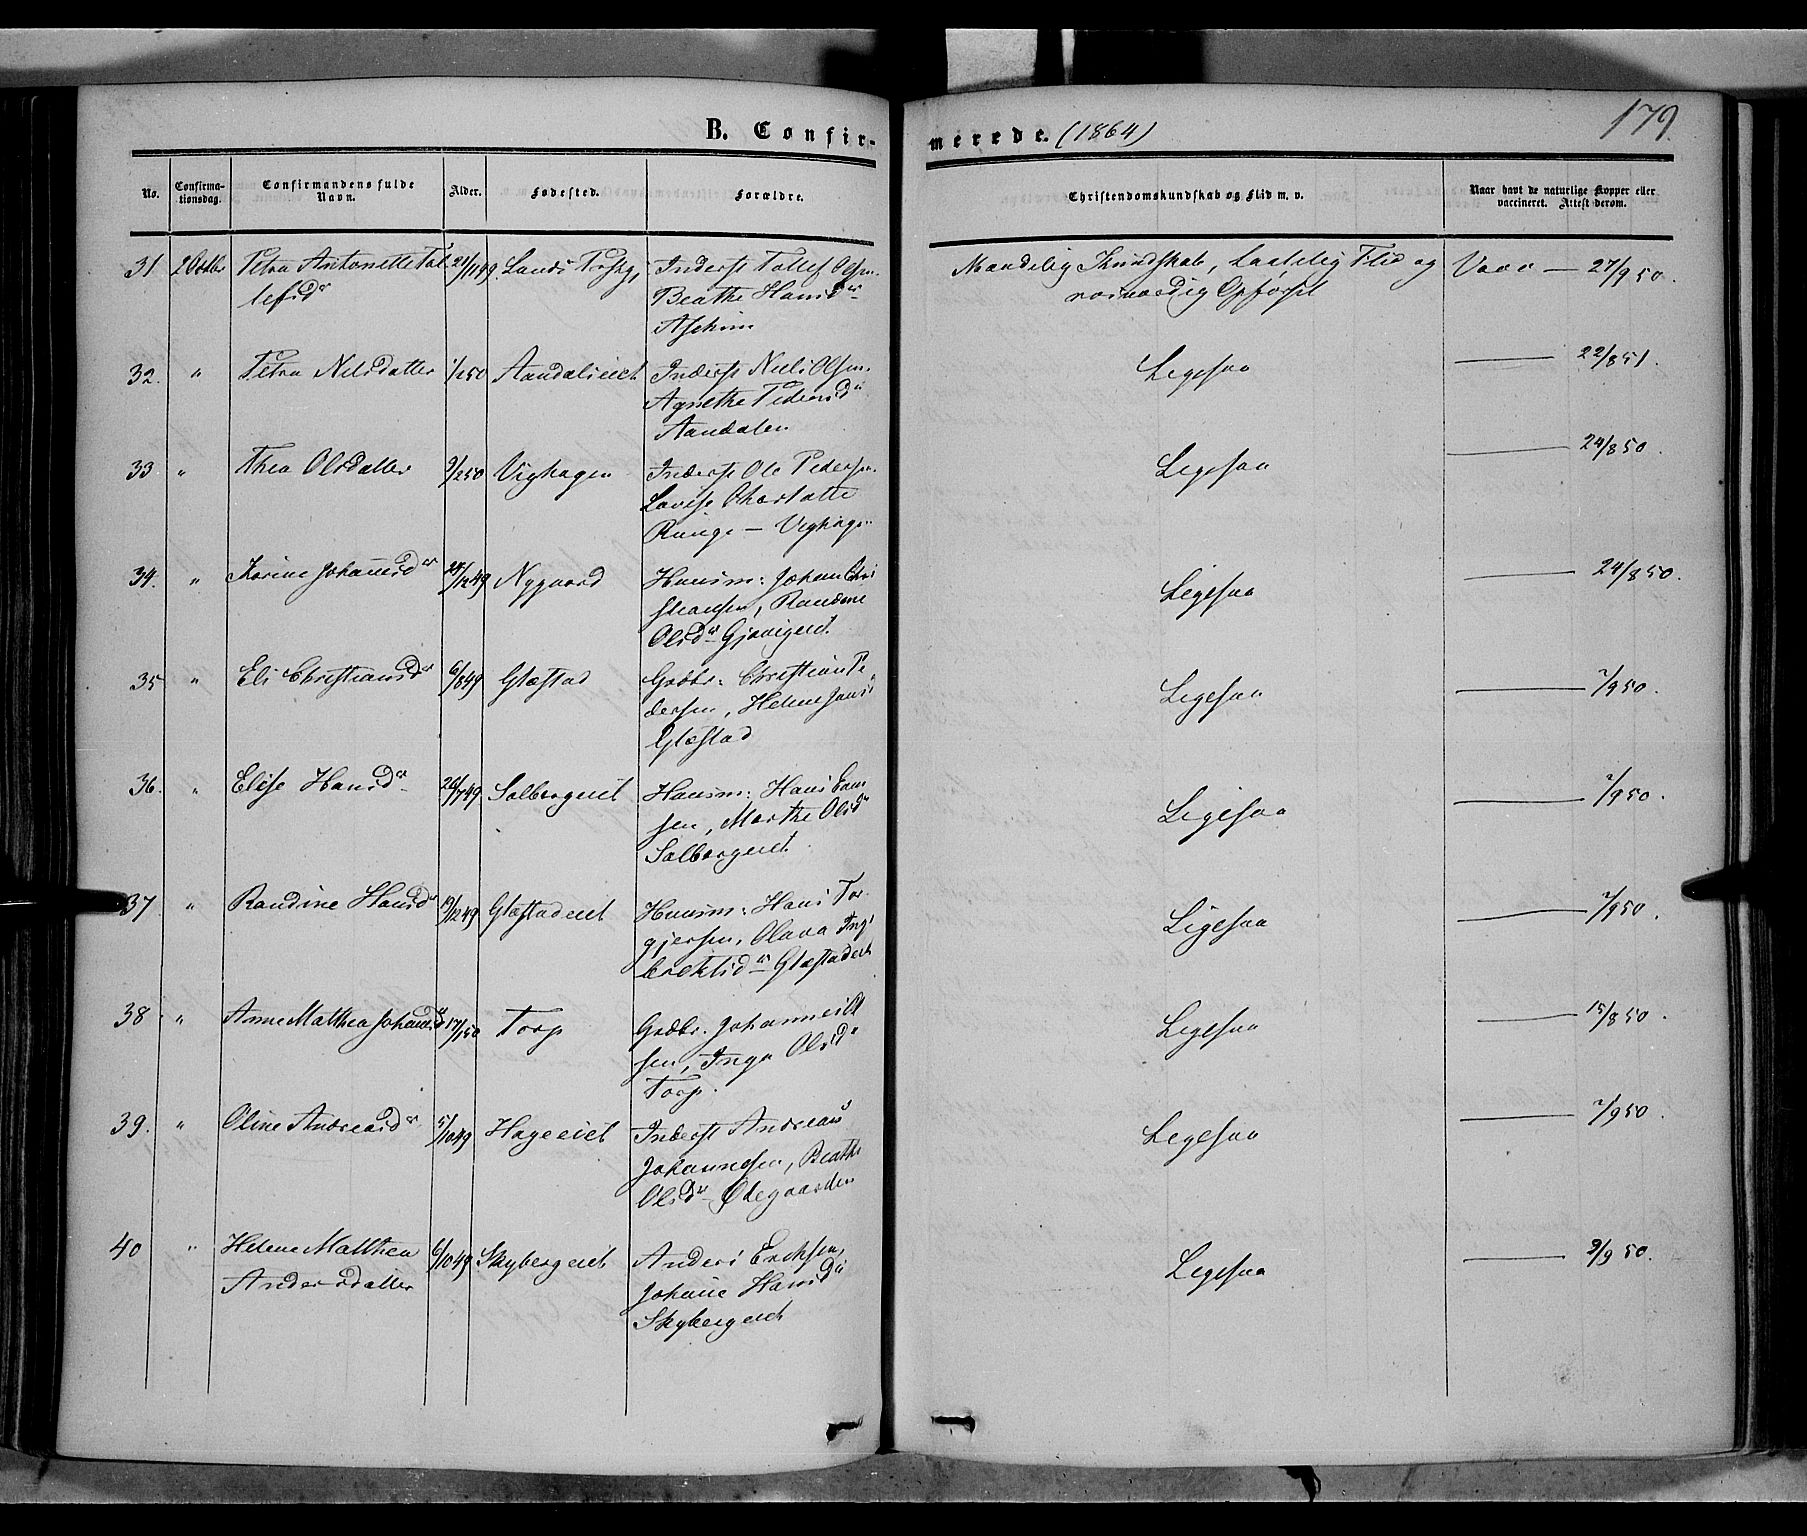 B. Confir-
merede. (1864)
179.
No.
Confirma-
tionsdag.
Confirmandens fulde
Navn.
Alder.
Fødested.
Forældre.
Christendomskundskab og Flid m. v.
Naar havt de naturlige Kopper eller
vaccineret. Attest derom.
31 2 Octbr Petra Antonette Tol
lefsdr
Lands
Inderst Tollef Olsen.
Beathe Hansdr
Mandelig Kundskab, Flid og
Opførsel
Vacc — 27/9 50.
32. " Petra Nilsdatter 1/2 50 Aandalseiet Inderst Niels Olsen.
Agnethe Pedersdr
Aandalen
Ligesaa
22/8 51.
33. " Thea Olsdatter 9/2 50 Vighagen Inderst Ole Pedersen.
Lovise Charlotte
Runge — Vighagen
Ligesaa
24/8 50.
34. " Karine Johansdr 24/12 49 Nygaard Huusm: Johan Chri
stiansen, Randine
Olsdr Gjøvigeiet
Ligesaa
24/8 50.
35 " Eli Christiansdr 6/8 49 Glæstad Grdbr: Christian Pe
dersen, Helene Jansdr
Glæstad
Ligesaa
7/9 50.
36. " Elise Hansdr 26/7 49 Solbergeiet Huusm: Hans
sen, Marthe Olsdr
Solbergeiet
Ligesaa
7/9 50.
37 " Randine Hansdr 19/12 49 Glæstadeiet Huusm: Hans Tor
gjersen, Olava Inge
brektsdr Glæstadeiet
Ligesaa
7/9 50.
38 " Anne Matthea Johansdr 17/1 50 Torp Grdbr. Johannes Ol
sen, Inga Olsdr
Torp.
Ligesaa
15/8 50.
39. " Oline Andreasdr 5/10 49 Hageeiet Inderst Andreas
Johannesen, Beathe
Olsdr Ødegaarden
Ligesaa
7/9 50.
40 " Helene Matthea 6/10 49 Skybergeiet Anders Erichsen,
Andersdatter Johane Hansdr
Skybergeiet
Ligesaa
9/9 50.